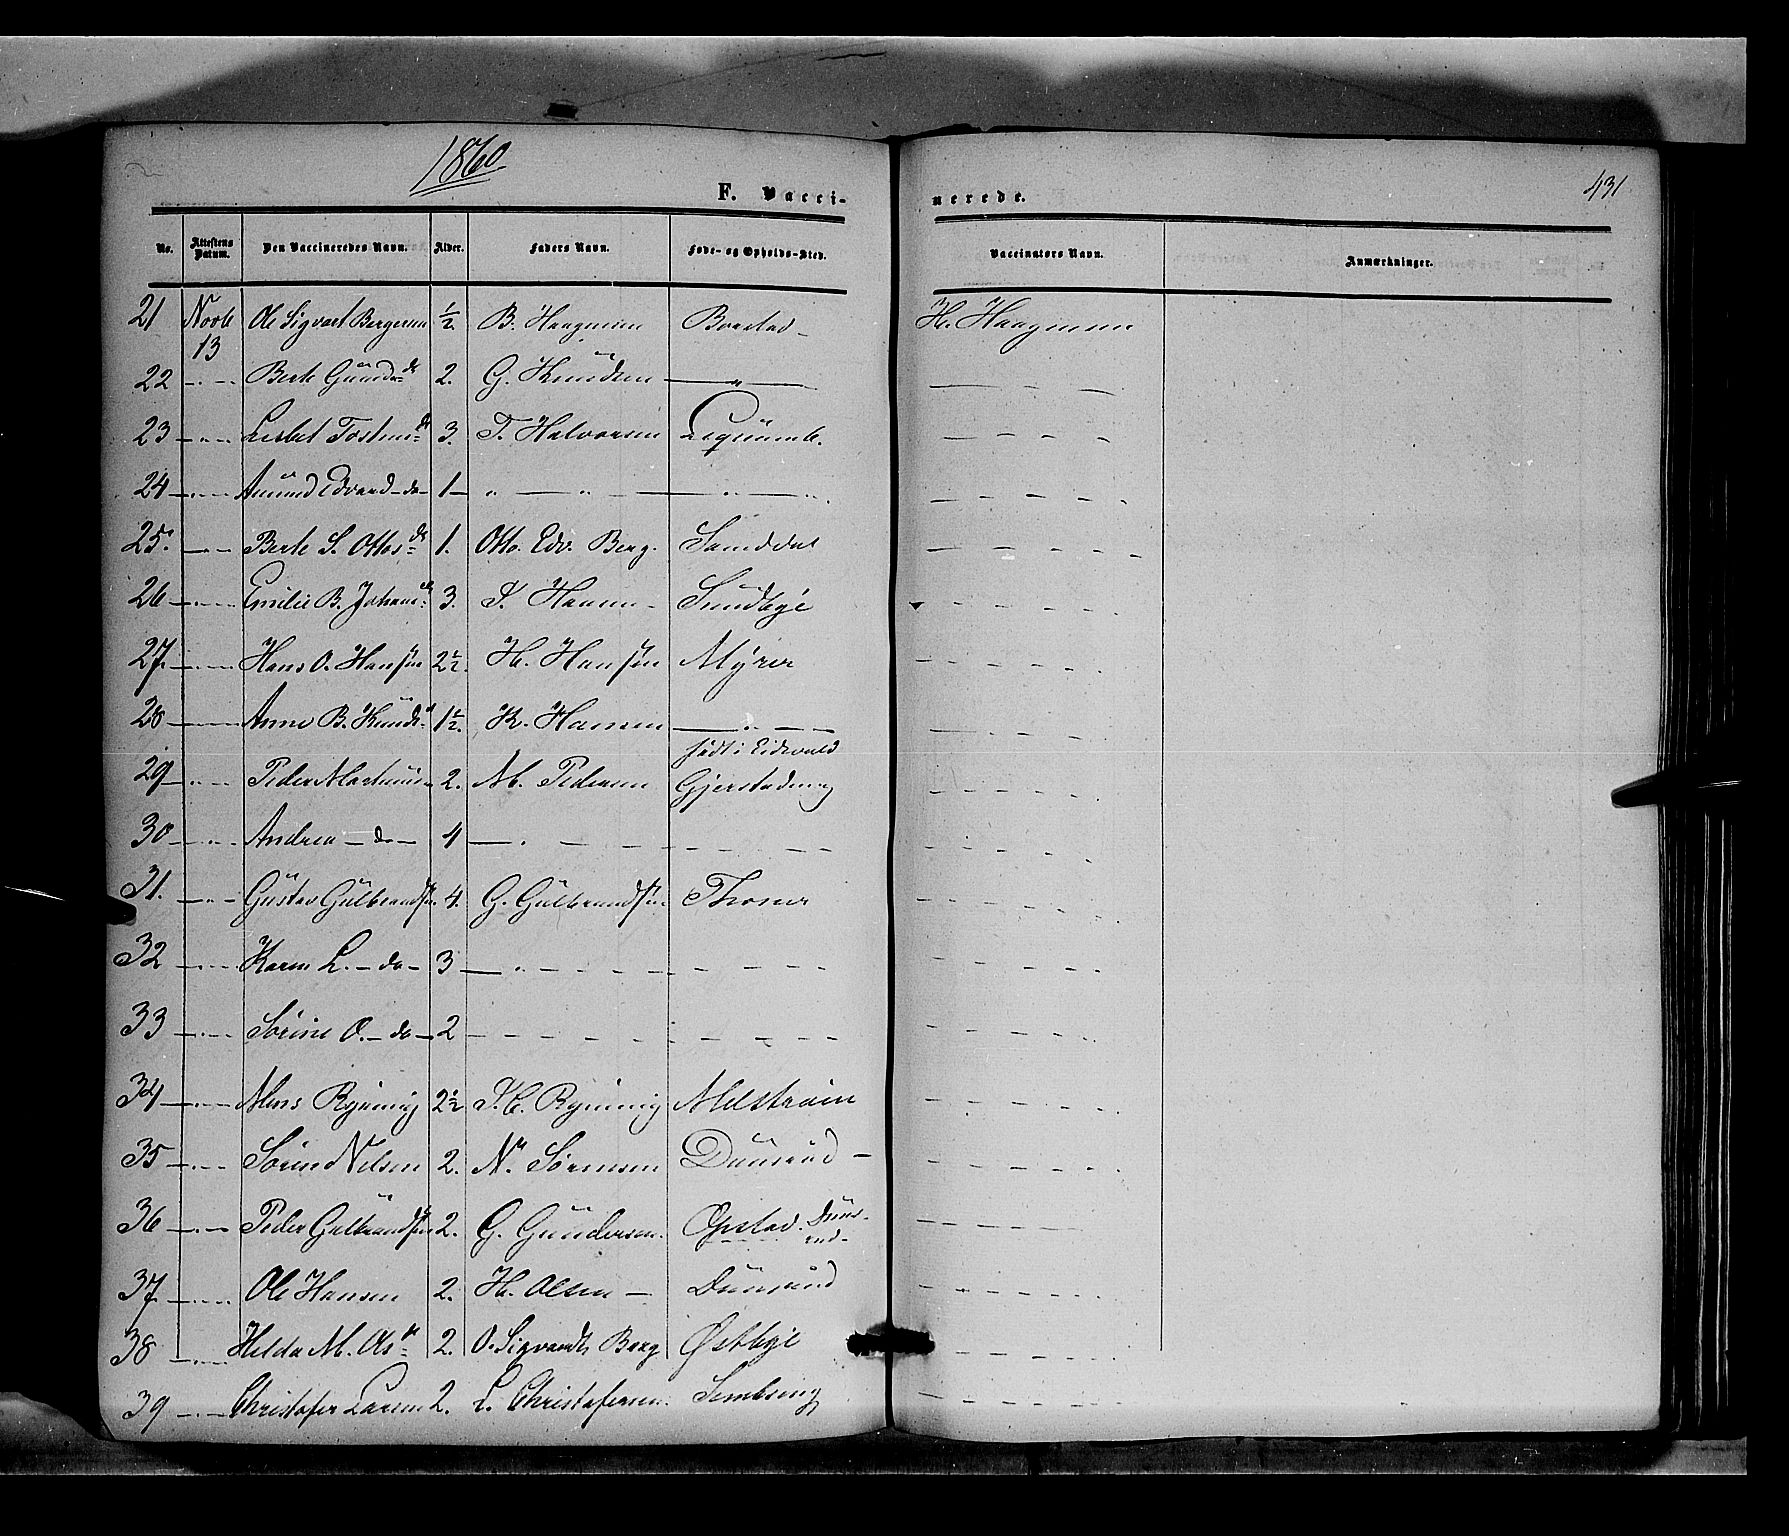 1860
431
F. Vacci-
nerede.
No. Attestens Datum. Den Vaccineredes Navn. Alder. Faders Navn. Føde- og Opholds-Sted. Vaccinators Navn. Anmærkninger.
21 Novb 13 Ole Sigvart Bergersen ½ B. Haagensen Borstad - H. Haagensen
22 - " - Berte Gunds d. 2. G. Knudsen - " -
23 - " - Lisbet Tostens dr 3. T. Halvorsen
24 - " - Amund Edvard - do - 1 - " - " - " - "
25. - " - Berte S. Ottos dr 1. Otto Edv. Berg.
26 - " - Emilie B. Johans dr 3. J. Hansen - Sundbye
27. - " - Hans O. Hansen 2½. H. Hansen Myrer
28 - " - Anne B. Knuds d 1½. K. Hansen - " -
født i Eidsvold
29 - " - Peder Martinius 2. M. Pedersen Gjerstadeng
30 - " - Andrea - do - 4 - " - - -
31. - " - Gustav Gulbrandsen 4. G. Gulbrandsen Throner
32 - " - Karen L. - do - 3 - " - - -
33 - " - Sørine O. - do - 2 - - - -
34 - " - Mens Ryning 2½ J. C. Ryning Melstrøm
35 - " - Søren Nilsen 2. N. Sørensen Duusrud -
36 - " - Peder Gulbrandsen 2. G. Gundersen. Opstad. Duus-
rud -
37 - " - Ole Hansen 2. H. Olsen - Duusrud
38 - " - Helda M. Ols dr 2. O. Sigvardt Berg Østbye
39 - " - Christofer Larsen 2. L. Christofersen. Sembseng